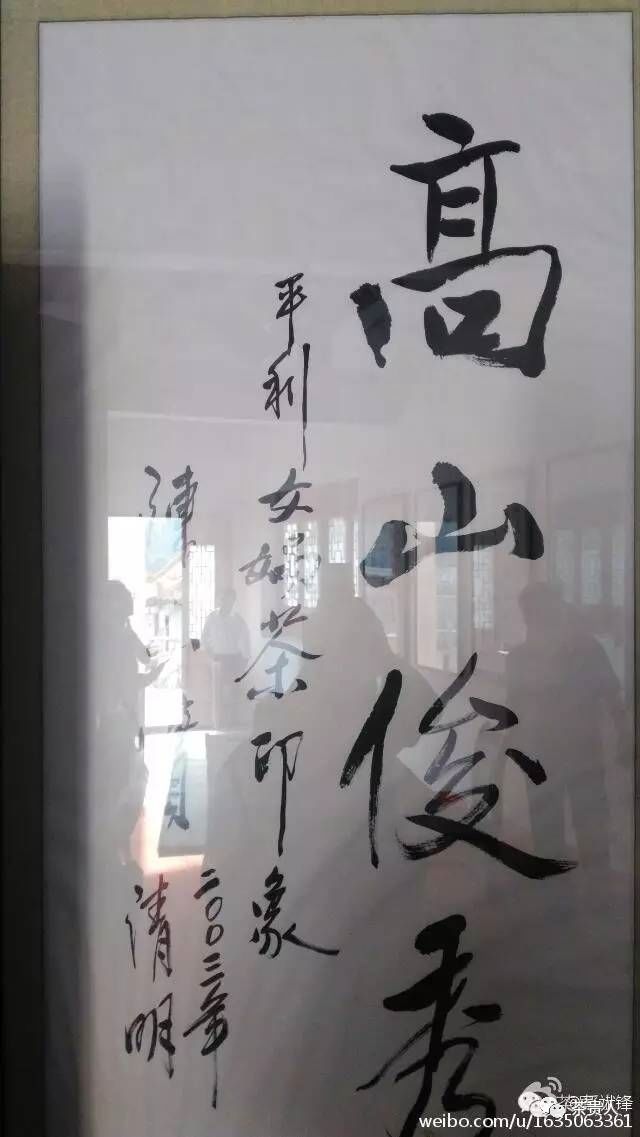 高山俊秀
平利女娲茶印象
二〇〇三年
清明
茶贵人
weibo.com/u/1635063361